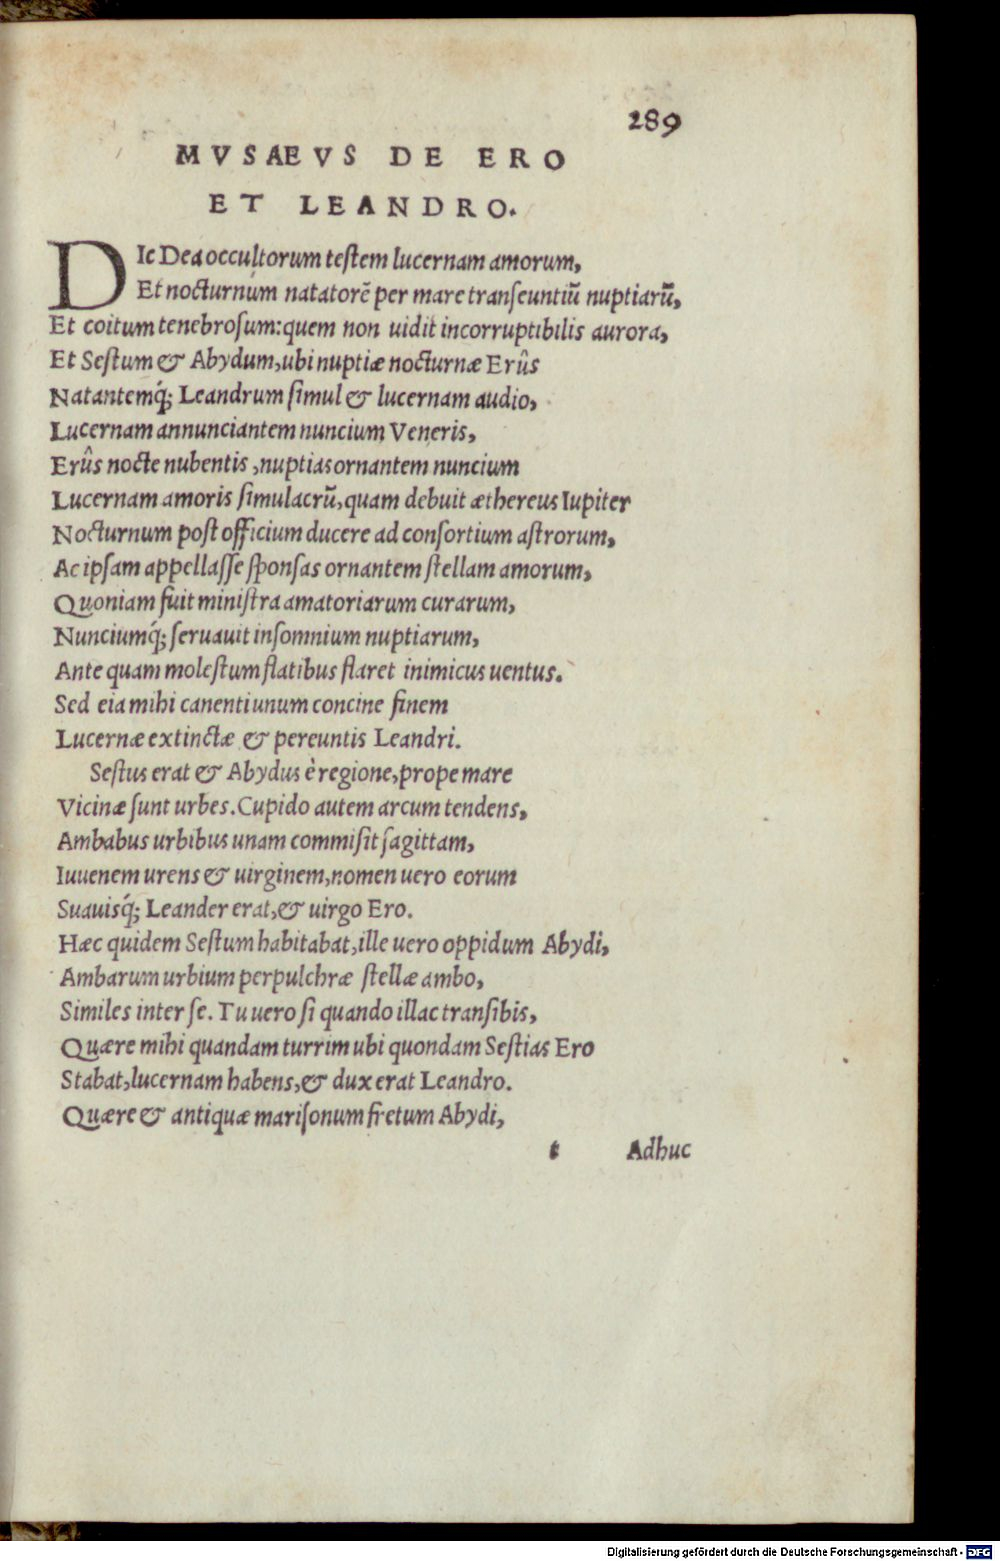 289
MVSAEVS DE ERO
ET LEANDRO.
DIc Dea occultorum teſtem lucernam amorum,
Et nocturnum natatorē per mare tranſeuntiū nuptiarū,
Et coitum tenebroſum: quem non uidit incorruptibilis aurora,
Et Seſtum & Abydum, ubi nuptiæ nocturnæ Erûs
Natantemq́; Leandrum ſimul & lucernam audio,
Lucernam annunciantem nuncium Veneris,
Erûs nocte nubentis, nuptias ornantem nuncium
Lucernam amoris ſimulacrū, quam debuit æthereus Iupiter
Nocturnum poſt officium ducere ad conſortium aſtrorum,
Ac ipſam appellaſſe ſponſas ornantem ſtellam amorum,
Quoniam fuit miniſtra amatoriarum curarum,
Nunciumq́; ſeruauit inſomnium nuptiarum,
Ante quam moleſtum flatibus flaret inimicus uentus.
Sed eia mihi canenti unum concine finem
Lucernæ extinctæ & pereuntis Leandri.
Seſtus erat & Abydus è regione, prope mare
Vicinæ ſunt urbes. Cupido autem arcum tendens,
Ambabus urbibus unam commiſit ſagittam,
Iuuenem urens & uirginem, nomen uero eorum
Suauisq́; Leander erat, & uirgo Ero.
Hæc quidem Seſtum habitabat, ille uero oppidum Abydi,
Ambarum urbium perpulchræ ſtellæ ambo,
Similes inter ſe. Tu uero ſi quando illac tranſibis,
Quære mihi quandam turrim ubi quondam Seſtias Ero
Stabat, lucernam habens, & dux erat Leandro.
Quære & antiquæ mariſonum fretum Abydi,
t Adhuc
Digitalisierung gefördert durch die Deutsche Forschungsgemeinschaft - DFG